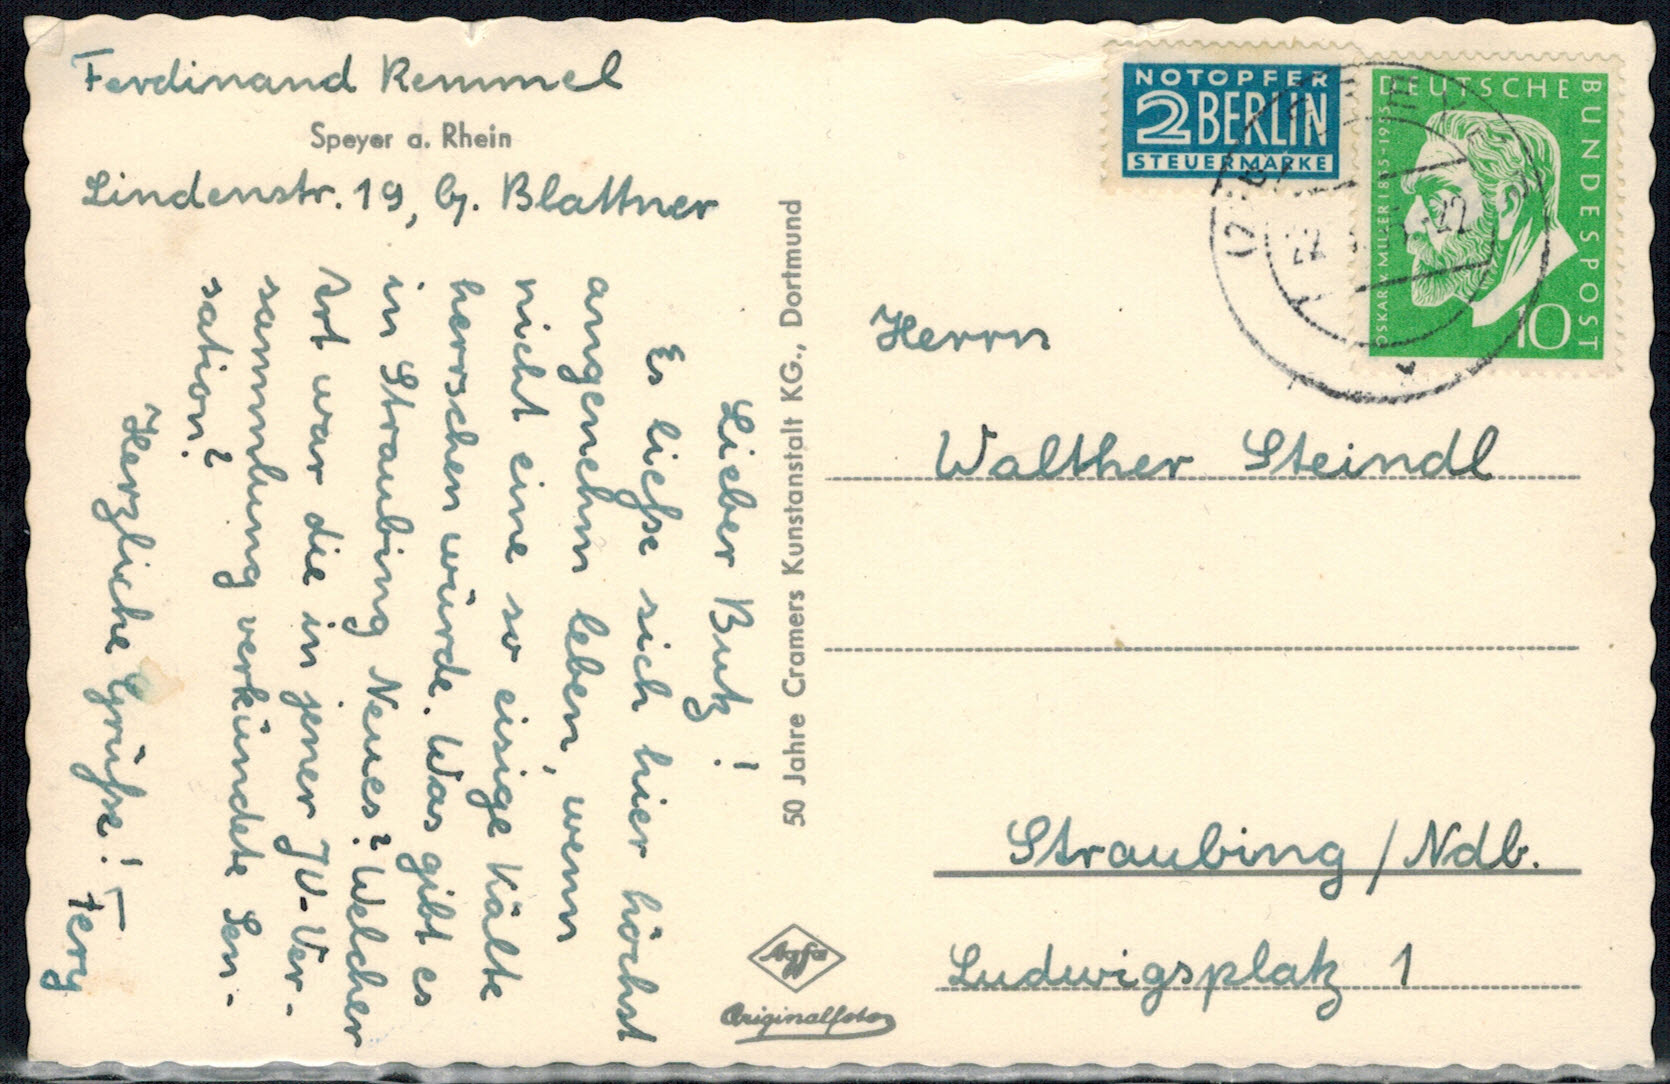 Ferdinand Remmel
Speyer a. Rhein
Lindenstr. 19, bg. Blattner
Lieber Butz!
Es ließe sich hier höchst
angenehm leben, wenn
nicht eine so eisige Kälte
herrschen würde. Was gibt es
in Straubing Neues? Welcher
Art war die in jener JU-Ver-
sammlung verkündete Sen-
sation?
Herzliche Grüße!
Ferg
50 Jahre Cramers Kunstanstalt KG., Dortmund
Agfa
Originalfoto
NOTOPFER
2 BERLIN
STEUERMARKE
DEUTSCHE BUNDESPOST
OSKAR V. MILLER 1855-1955
10
Herrn
Walther Steindl
Straubing / Ndb.
Ludwigsplatz 1